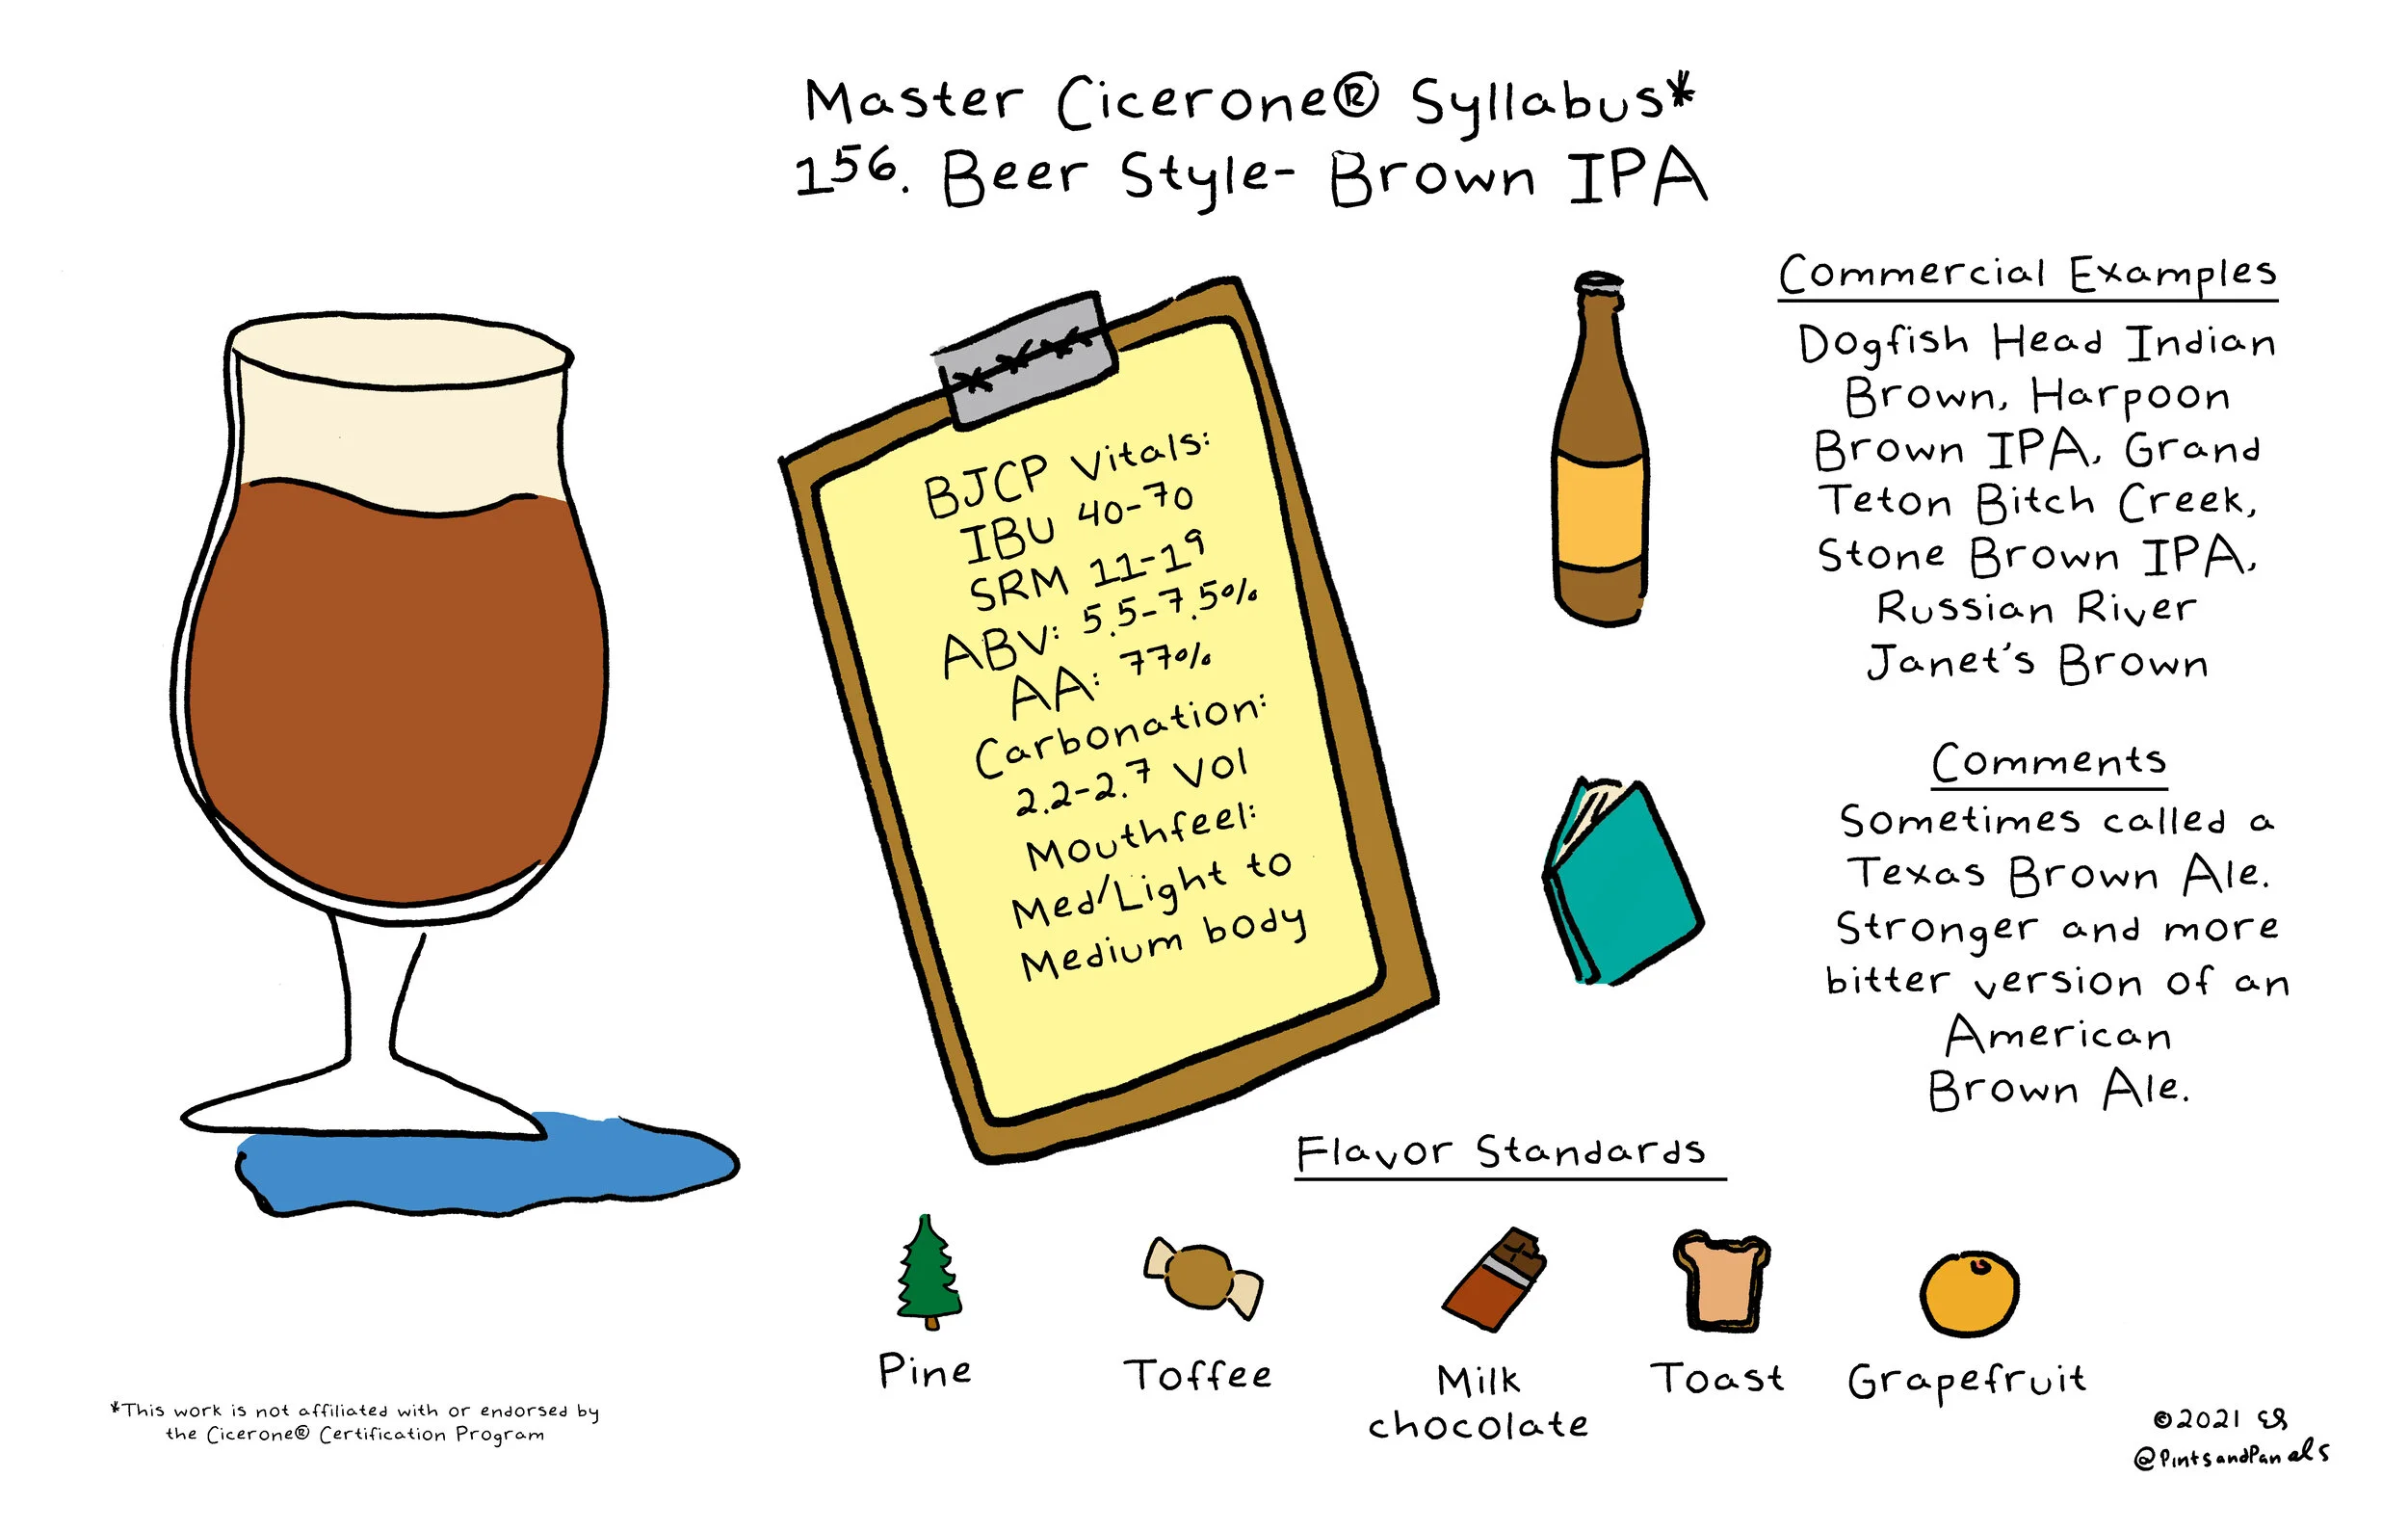 Master Cicerone® Syllabus*
156. Beer Style- Brown IPA
BJCP Vitals:
IBU 40-70
SRM 11-19
ABV: 5.5-7.5%
AA: 77%
Carbonation:
2.2-2.7 Vol
Mouthfeel:
Med/Light to
Medium body
Commercial Examples
Dogfish Head Indian
Brown, Harpoon
Brown IPA, Grand
Teton Bitch Creek,
Stone Brown IPA,
Russian River
Janet's Brown
Comments
Sometimes called a
Texas Brown Ale.
Stronger and more
bitter version of an
American
Brown Ale.
Flavor Standards
Pine
Toffee
Milk
chocolate
Toast
Grapefruit
*This work is not affiliated with or endorsed by
the Cicerone® Certification Program
©2021
@PintsandPanels